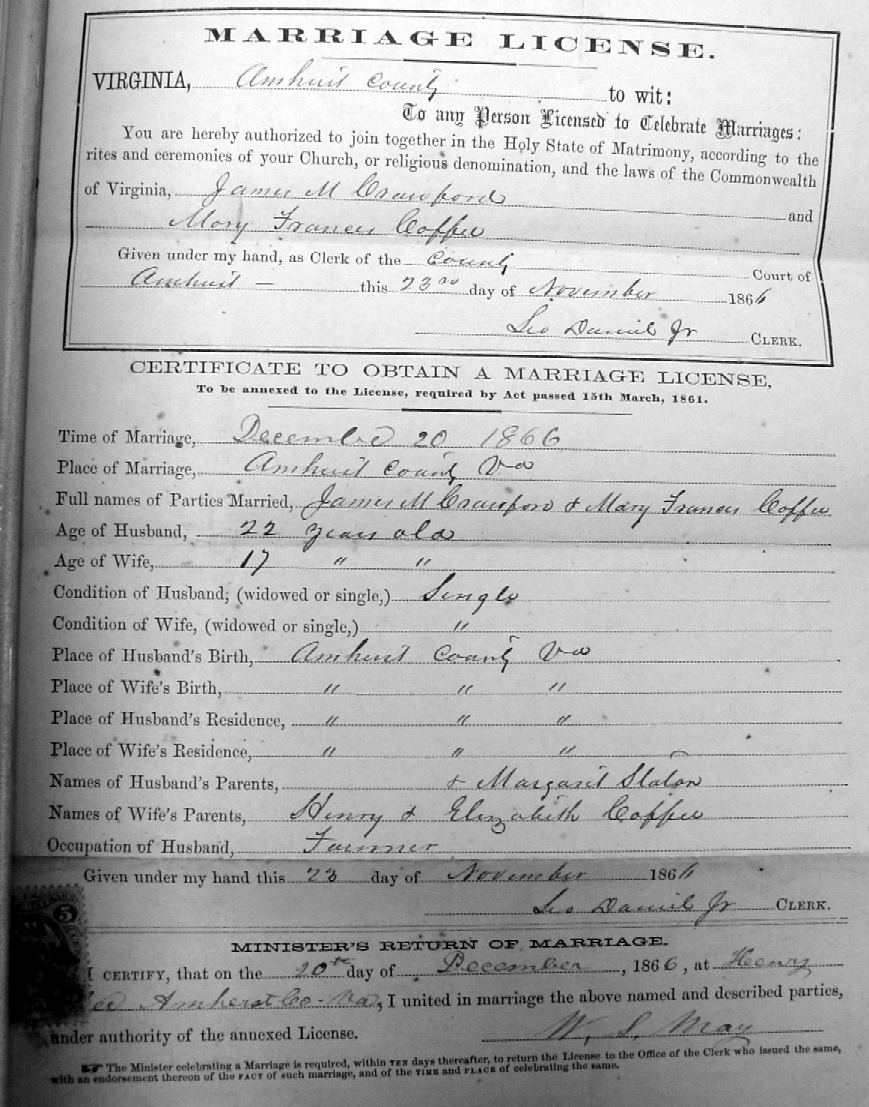 MARRIAGE LICENSE.
VIRGINIA, Amherst County to wit:
To any Person Licensed to Celebrate Marriages:
You are hereby authorized to join together in the Holy State of Matrimony, according to the
rites and ceremonies of your Church, or religious denomination, and the laws of the Commonwealth
of Virginia, James M Crawford and
Mary Frances Coffee
Given under my hand, as Clerk of the County Court of
Amherst — this 23rd day of November 1866
Geo Daniel Jr CLERK.
CERTIFICATE TO OBTAIN A MARRIAGE LICENSE,
To be annexed to the License, required by Act passed 15th March, 1861.
Time of Marriage, December 20 1866
Place of Marriage, Amherst County Va
Full names of Parties Married, James M Crawford & Mary Frances Coffee
Age of Husband, 22 years old
Age of Wife, 17 " "
Condition of Husband, (widowed or single,) Single
Condition of Wife, (widowed or single,) "
Place of Husband's Birth, Amherst County Va
Place of Wife's Birth, " " "
Place of Husband's Residence, " " "
Place of Wife's Residence, " " "
Names of Husband's Parents, & Margaret Slaton
Names of Wife's Parents, Henry & Elizabeth Coffee
Occupation of Husband, Farmer
Given under my hand this 23 day of November 1866
Geo Daniel Jr CLERK.
5
MINISTER'S RETURN OF MARRIAGE.
I CERTIFY, that on the 20th day of December, 1866, at Henry
Amherst Co. Va, I united in marriage the above named and described parties,
under authority of the annexed License. W. S. May
☛ The Minister celebrating a Marriage is required, within TEN days thereafter, to return the License to the Office of the Clerk who issued the same,
with an endorsement thereon of the FACT of such marriage, and of the TIME and PLACE of celebrating the same.